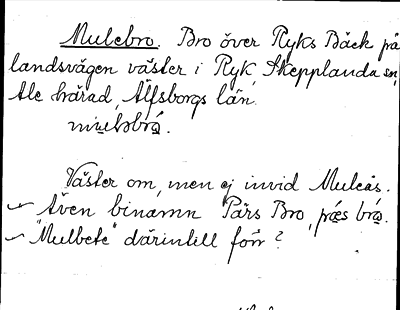 Mulebro. Bro över Ryks Bäck på
landsvägen väster i Ryk, Skepplanda sn,
Ale härad, Älfsborgs län.
Väster om, men ej invid Muleås.
Även binamn Pärs Bro, pæs brо̨.
"Mulbete" därintill förr?